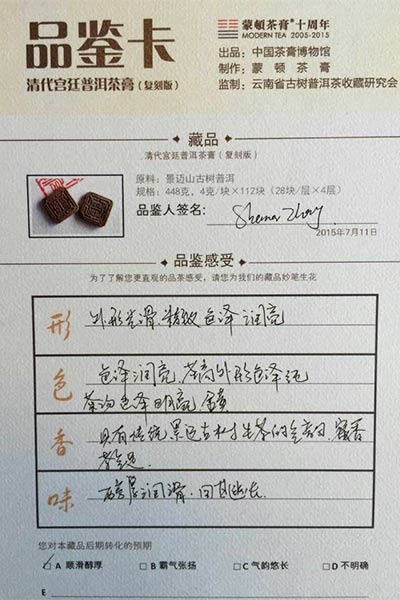 品鉴卡
清代宫廷普洱茶膏（复刻版）
蒙顿茶膏®十周年
MODERN TEA 2005-2015
出品：中国茶膏博物馆
制作：蒙顿茶膏
监制：云南省古树普洱茶收藏研究会
藏品
清代宫廷普洱茶膏（复刻版）
原料：景迈山古树普洱
规格：448克，4克/块×112块（28块/层×4层）
品鉴人签名：
2015年7月11日
品鉴感受
为了了解您更直观的品茶感受，请您为我们的藏品妙笔生花
形 外形光滑 精致 色泽润亮
色 色泽润亮、茶膏外形色泽纯
茶汤色泽明亮
香 具有传统景迈古树生茶的
味 醇厚润滑、回甘悠长
您对本藏品后期转化的预期
A 顺滑醇厚 B 霸气张扬 C 气韵悠长 D 不明确
E